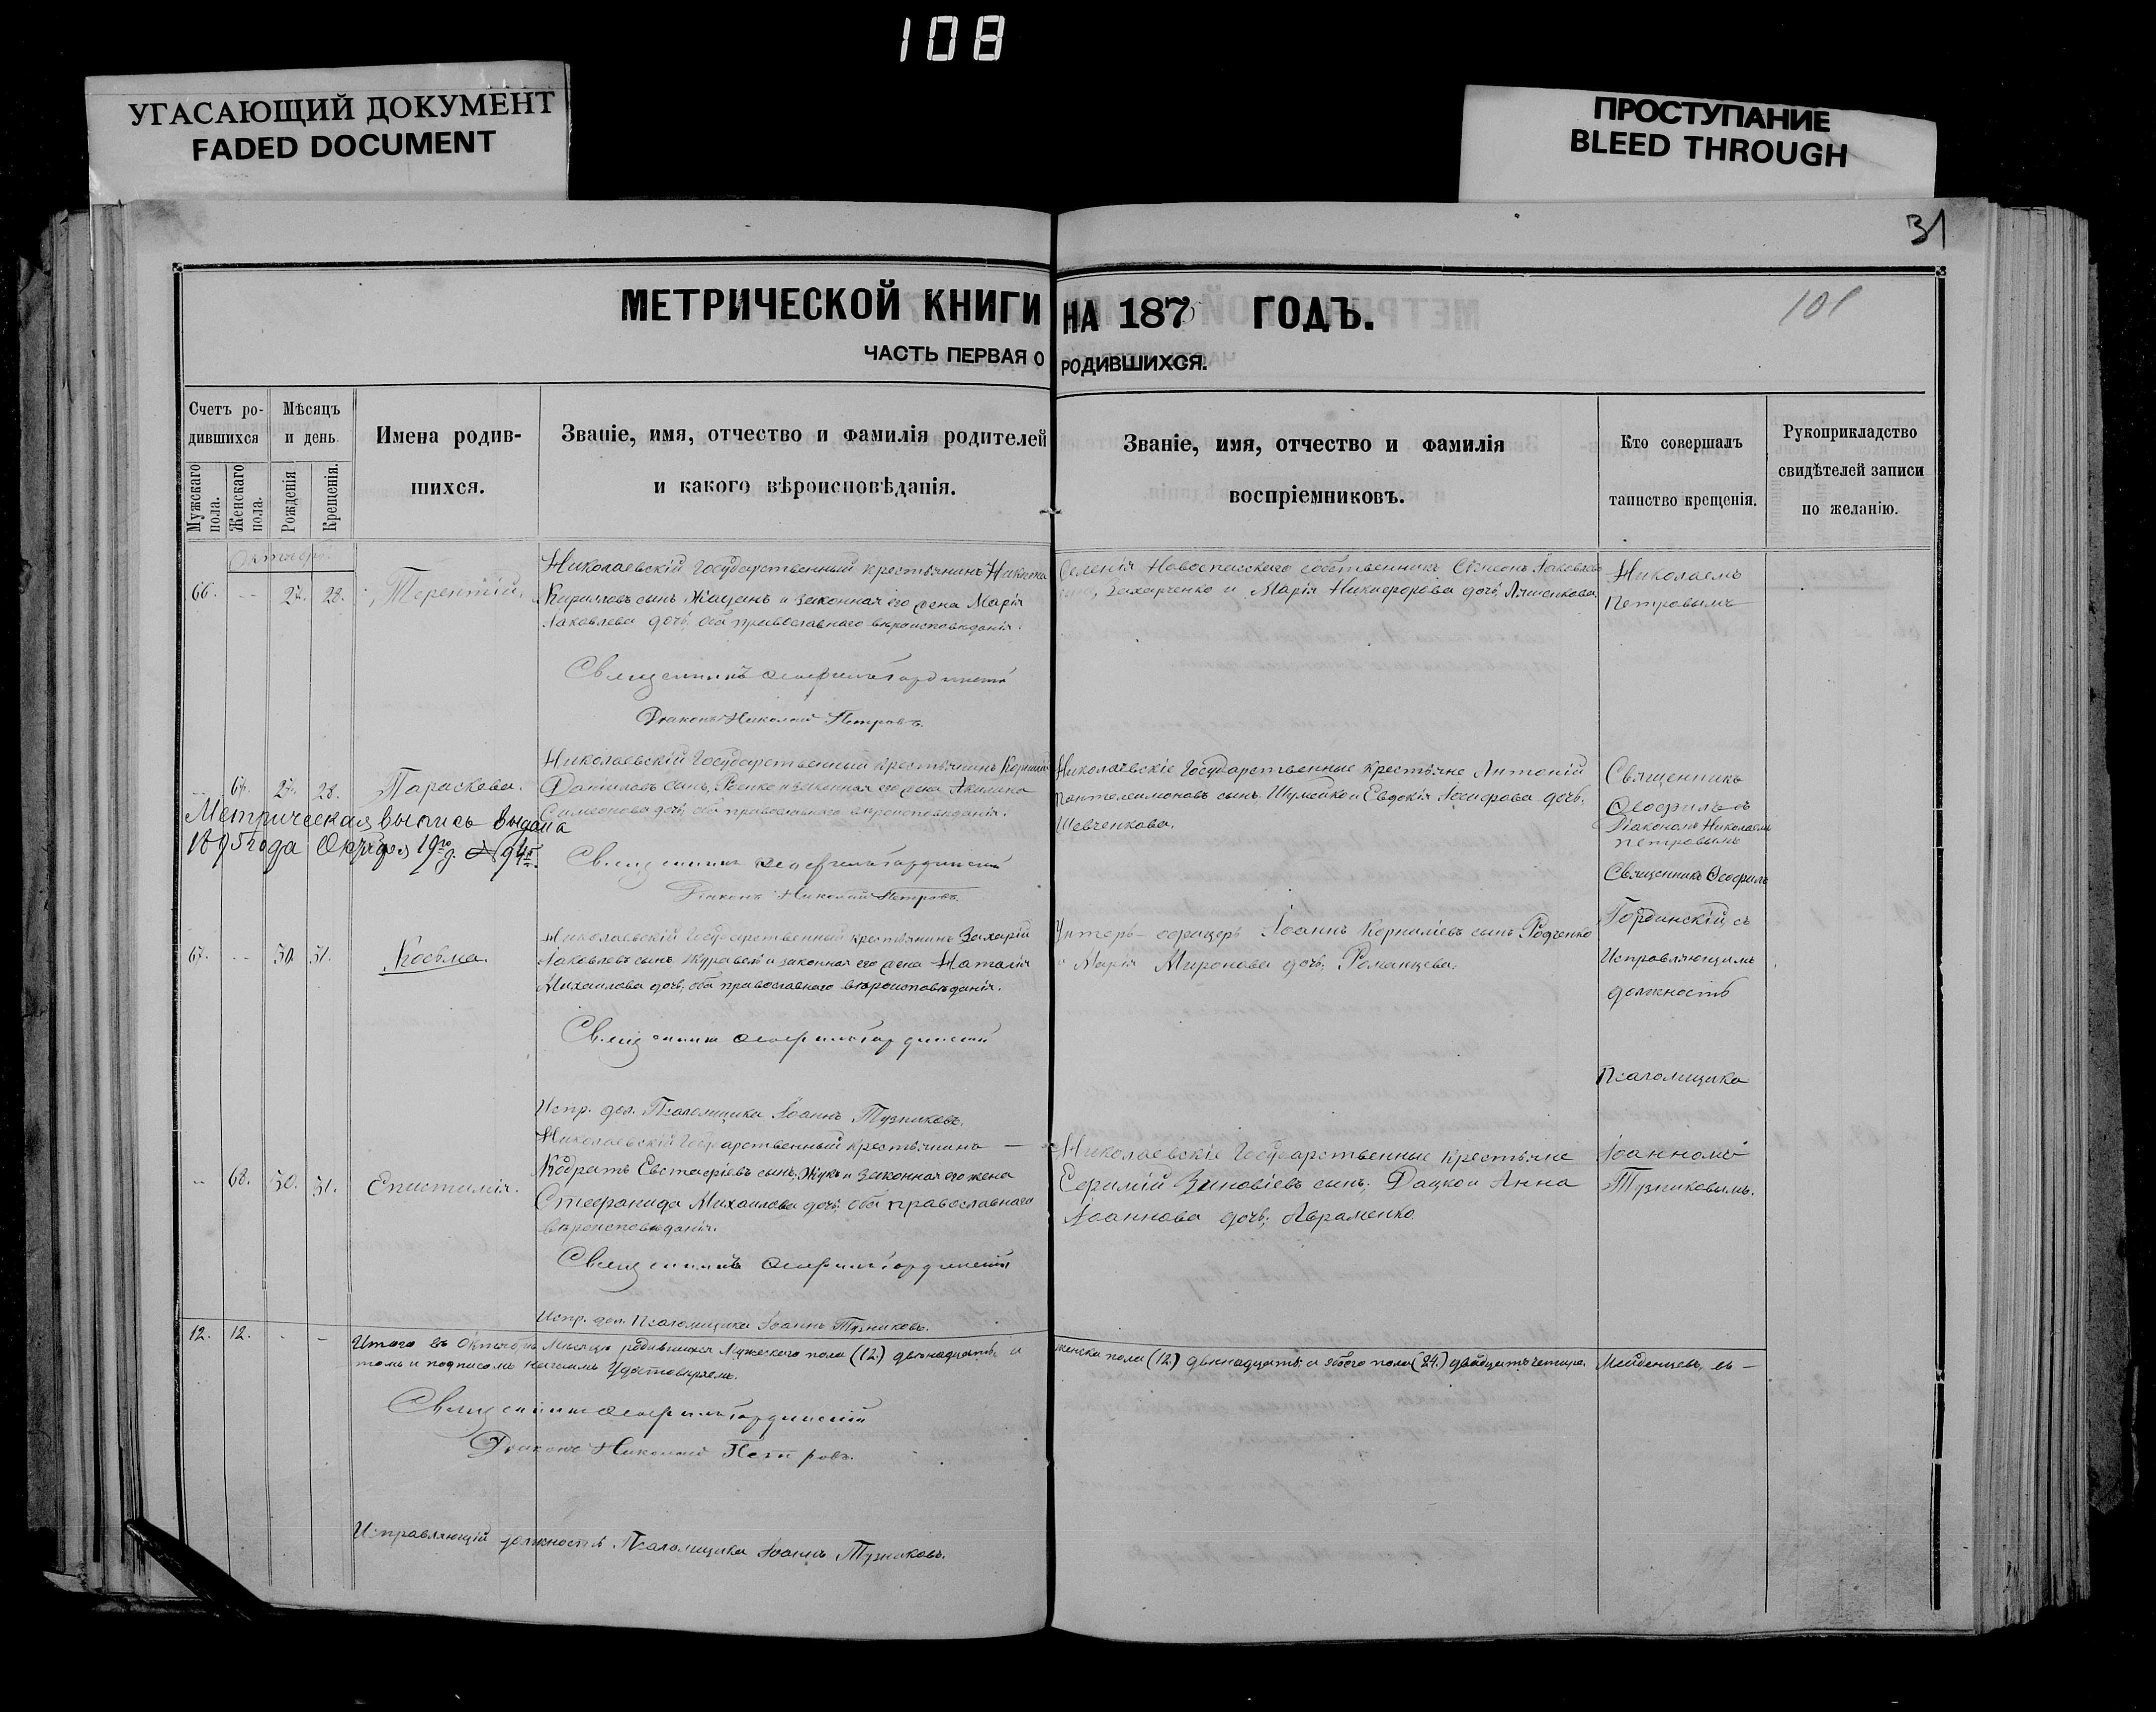 108
УГАСАЮЩИЙ ДОКУМЕНТ
FADED DOCUMENT
ПРОСТУПАНИЕ
BLEED THROUGH
31
101
МЕТРИЧЕСКОЙ КНИГИ НА 187 ГОДЪ.
ЧАСТЬ ПЕРВАЯ О РОДИВШИХСЯ.
Счетъ ро-
дившихся
Мужскаго пола.
Женскаго пола.
Мѣсяцъ
и день.
Рожденія
Крещенія.
Имена родив-
шихся.
Званіе, имя, отчество и фамилія родителей
и какого вѣроисповѣданія.
Званіе, имя, отчество и фамилія
воспріемниковъ.
Кто совершалъ
таинство крещенія.
Рукоприкладство
свидѣтелей записи
по желанію.
66. -- 27. 28.
Терентій.
Николаевскій Государственный крестьянинъ Никита
Кирилловъ сынъ и законная его жена Марія
Іаковлева дочь, оба православнаго вѣроисповѣданія.
Священникъ Ѳеофилъ Гординскій
Діаконъ Николай Петровъ.
Селенія Новоспасскаго собственникъ Сѵмеонъ Іаковлевъ
Захарченко и Марія Никифорова дочь, Ляшенкова
Николаемъ
Петровымъ
-- 67. 27. 28.
Параскева.
Николаевскій Государственный крестьянинъ
Даніиловъ сынъ, и законная его жена Акилина
Симеонова дочь, оба православнаго вѣроисповѣданія.
Священникъ Ѳеофилъ Гординскій
Діаконъ Николай Петровъ.
Метрическая выпись выдана
1895 года Октября 19го д. № 94
Николаевскіе Государственные крестьяне Антоній
Пантелеимоновъ сынъ, Шумейко и Евдокія Іосифова дочь,
Шевченкова.
Священникъ
Ѳеофилъ съ
Діакономъ Николаемъ
Петровымъ
67. -- 30. 31.
Косьма.
Николаевскій Государственный крестьянинъ Захарій
Іаковлевъ сынъ Журавель и законная его жена Наталія
Михаилова дочь, оба православнаго вѣроисповѣданія.
Священникъ Ѳеофилъ Гординскій
Испр. дол. Псаломщика Іоаннъ Тузниковъ.
Унтеръ-офицеръ Іоаннъ Корниліевъ сынъ Радченко
и Марія Миронова дочь, Романцева.
Священникъ Ѳеофилъ
Гординскій съ
Исправляющимъ
должность
Псаломщика
-- 68. 30. 31.
Епистимія.
Николаевскій Государственный крестьянинъ —
Кодратъ Евстафіевъ сынъ, Жукъ и законная его жена
Стефанида Михаилова дочь, оба православнаго
вѣроисповѣданія.
Священникъ Ѳеофилъ Гординскій
Испр. дол. Псаломщика Іоаннъ Тузниковъ.
Николаевскіе Государственные крестьяне
Ефимій Зиновіевъ сынъ, Дацко и Анна
Іоаннова дочь, Авраменко
Іоанномъ
Тузниковымъ.
12. 12. - -
Итого въ Октябрѣ Мѣсяцѣ родившихся Мужескаго пола (12) двѣнадцать и женска пола (12) двѣнадцать, а обоего пола (24) двадцать четыре. Младенцевъ, въ —
томъ и подписомъ нашимъ Удостовѣряемъ.
Священникъ Ѳеофилъ Гординскій
Діаконъ Николай Петровъ.
Исправляющій должность Псаломщика Іоаннъ Тузниковъ.